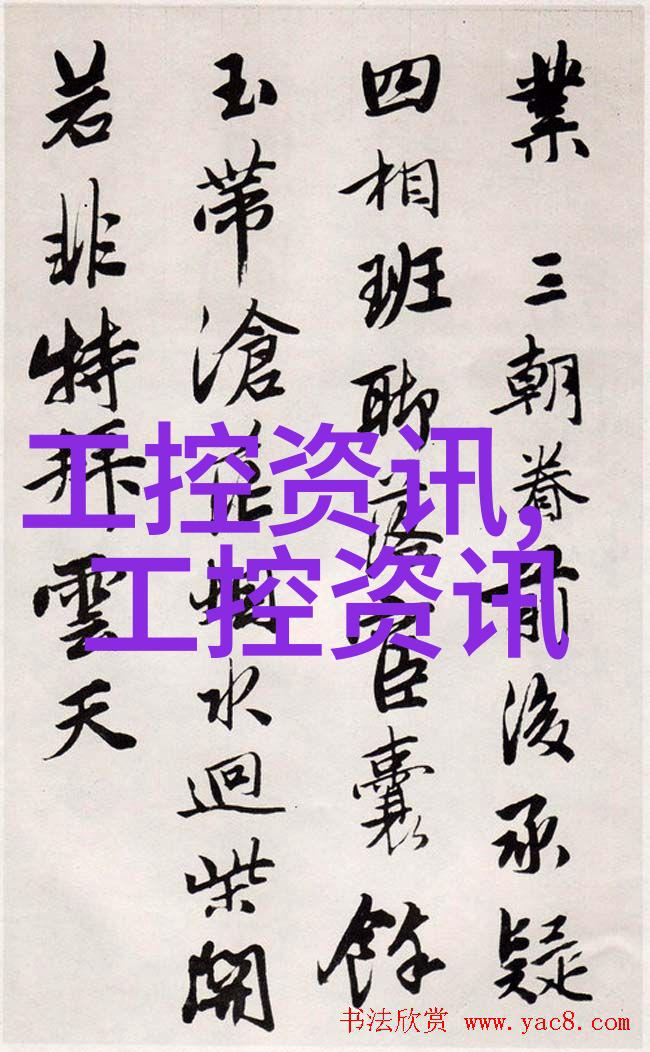 業 三朝眷前後承疑
四相班聊落臣囊餘
玉帶滄水迴柴開
若非特拜雲天
工控资讯,
工控资讯
书法欣赏 www.yac8.com